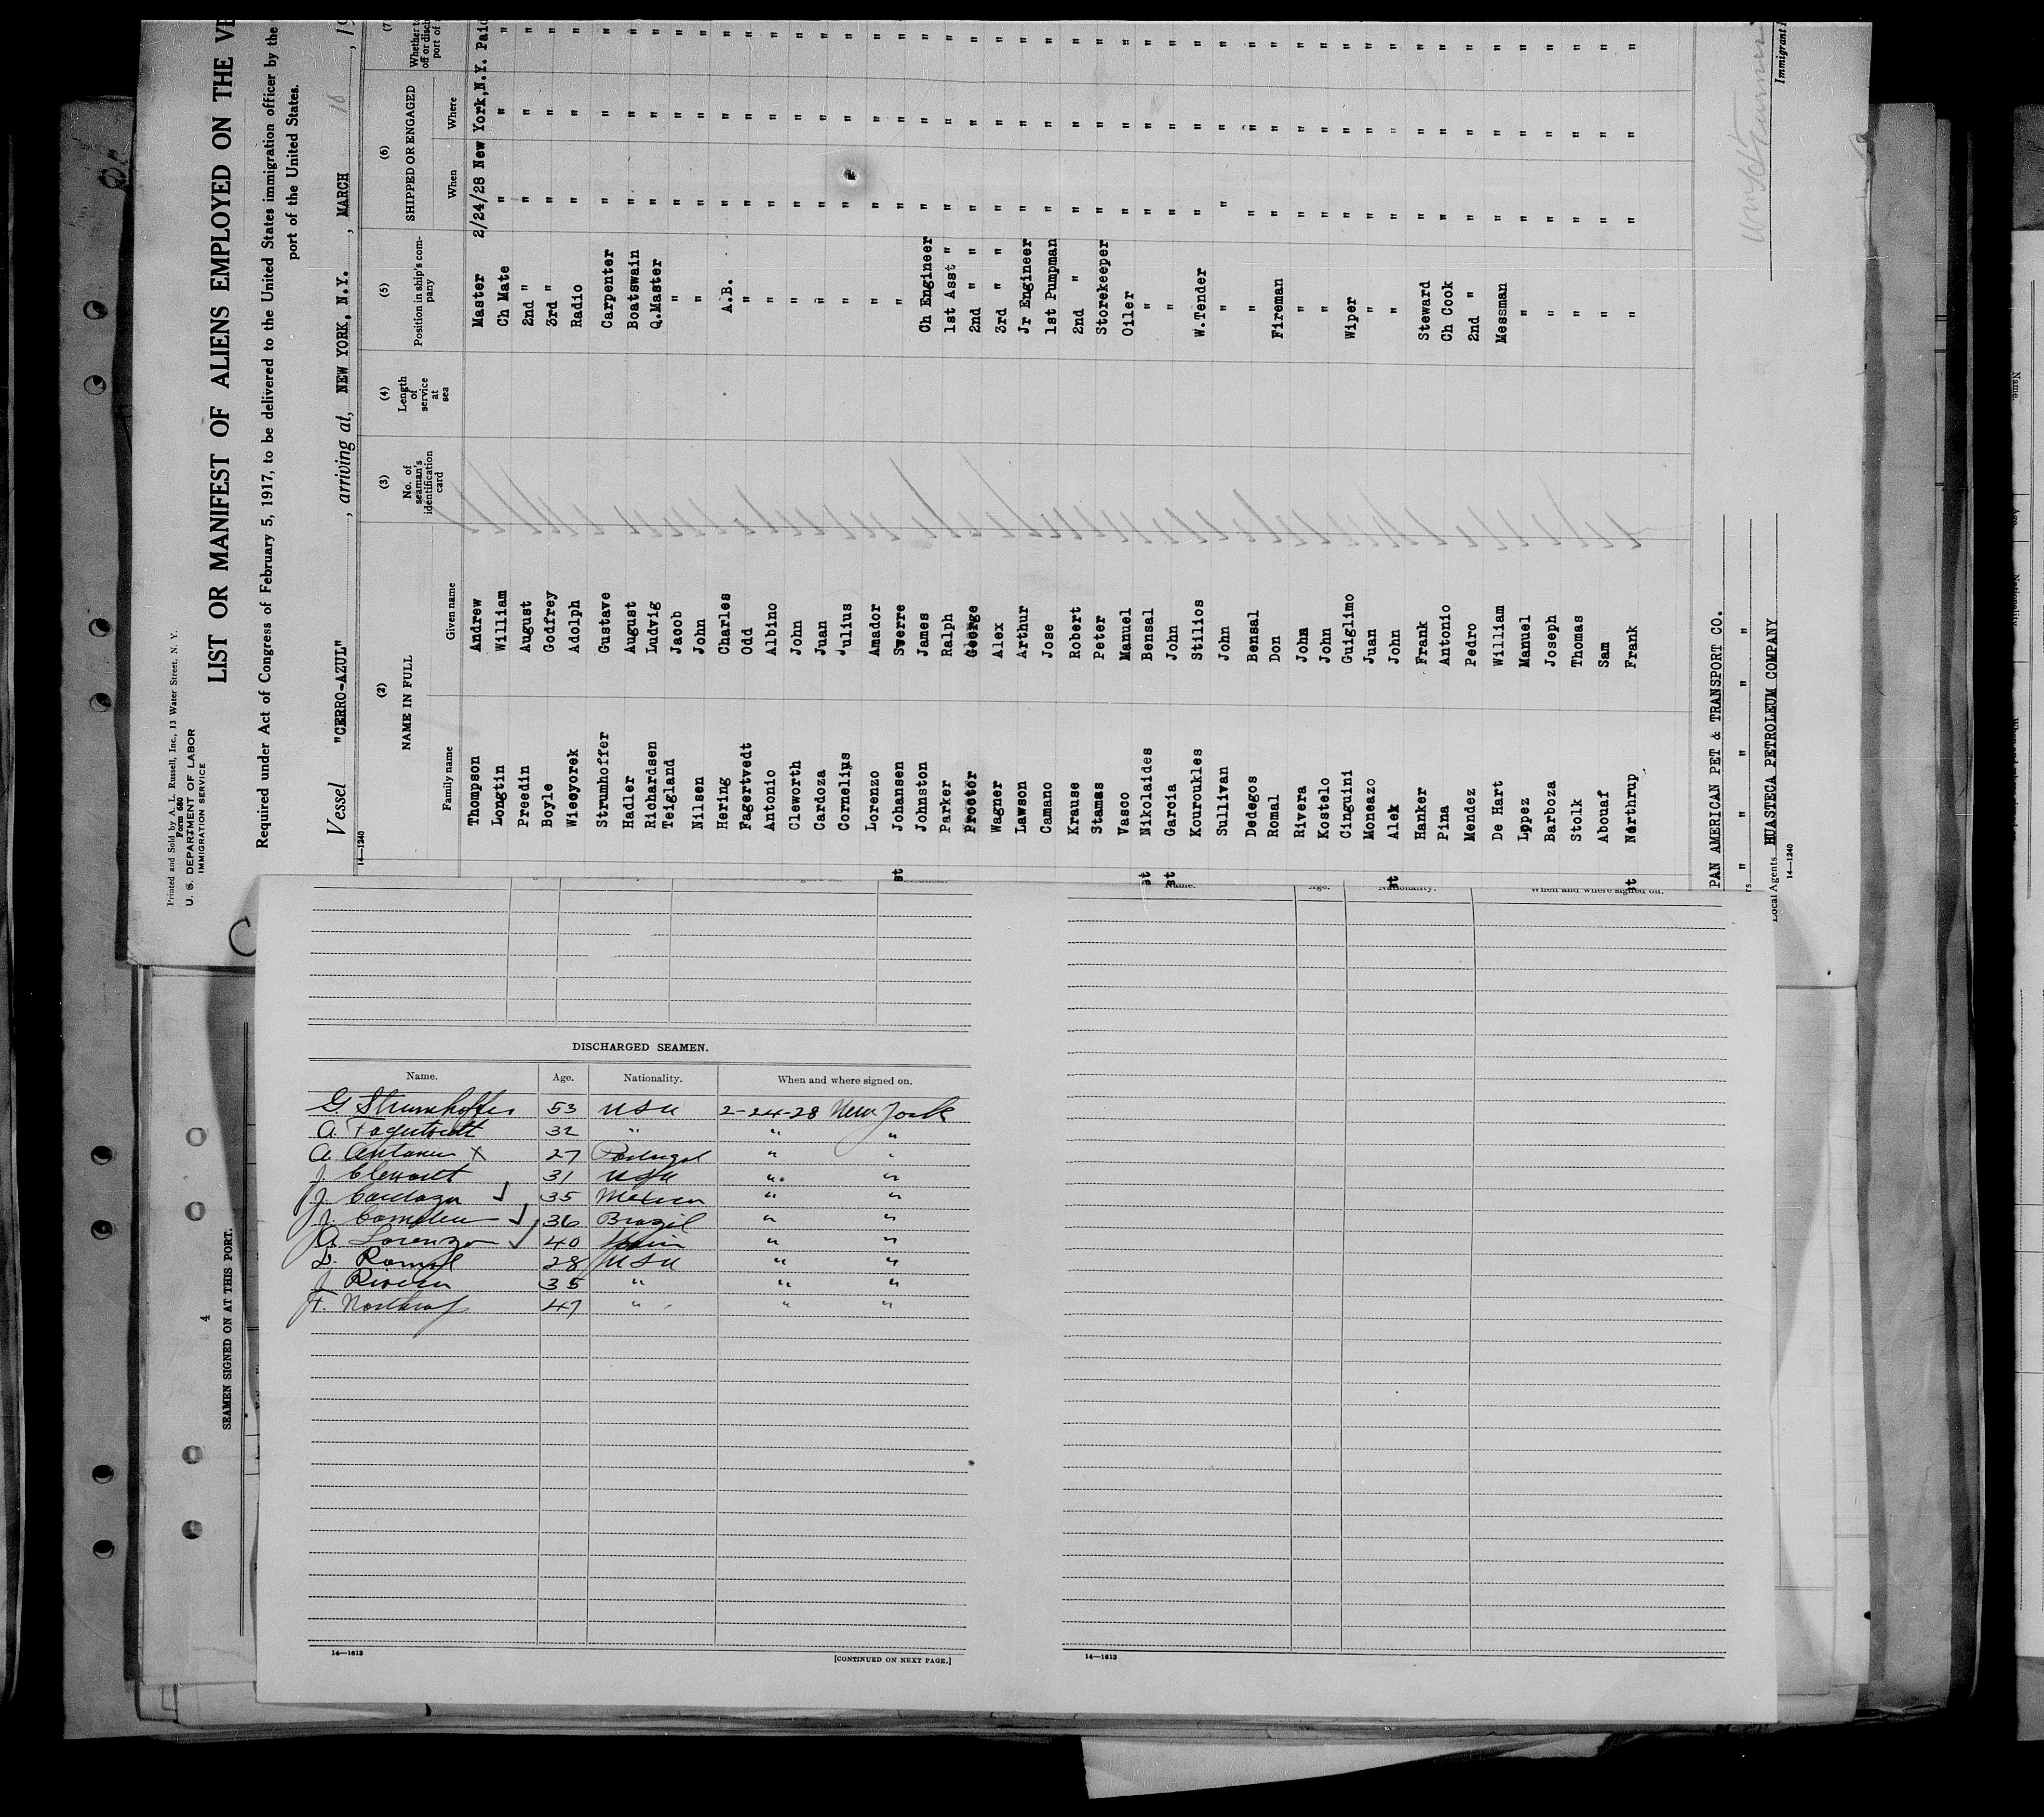 Printed and Sold by A. L. Russell, Inc., 13 Water Street, N. Y.
Form 680
U. S. DEPARTMENT OF LABOR
IMMIGRATION SERVICE
LIST OR MANIFEST OF ALIENS EMPLOYED ON THE VE
Required under Act of Congress of February 5, 1917, to be delivered to the United States immigration officer by the
port of the United States.
Vessel "CERRO-AZUL", arriving at, NEW YORK, N.Y., MARCH 10, 19
14—1240
(2) (3) (4) (5) (6) (7)
NAME IN FULL No. of seaman's identification card Length of service at sea Position in ship's company SHIPPED OR ENGAGED Whether to
off or disch
port of
Family name Given name When Where
Thompson Andrew Master 2/24/28 New York,N.Y. Paid
Longtin William Ch Mate " " "
Preedin August 2nd " " " "
Boyle Godfrey 3rd " " " "
Wieeyorek Adolph Radio " " "
Strumhoffer Gustave Carpenter " " "
Hadler August Boatswain " " "
Richardsen Ludvig Q.Master " " "
Teigland Jacob " " " "
Nilsen John " " " "
Hering Charles A.B. " " "
Fagertvedt Odd " " " "
Antonio Albino " " " "
Cleworth John " " " "
Cardoza Juan " " " "
Cornelius Julius " " "
Lorenzo Amador " " " "
Johansen Swerre " " " "
st Johnston James Ch Engineer " " "
Parker Ralph 1st Asst " " " "
Proctor George 2nd " " " " "
Wagner Alex 3rd " " " " "
Lawson Arthur Jr Engineer " " "
Camano Jose 1st Pumpman " " "
Krause Robert 2nd " " " "
Stamas Peter Storekeeper " " "
Vasco Manuel Oiler " " "
st Nikolaides Bensal " " " "
st Garcia John " " " "
Kouroukles Stilios W.Tender " " "
Sullivan John " " " "
Dedegos Bensal " " " "
Romal Don Fireman " " "
Rivera John " " " "
Kostelo John " " " "
Cinguini Guiglimo Wiper " " "
Moneazo Juan " " " "
st Alek John " " " "
Hanker Frank Steward " " "
Pina Antonio Ch Cook " " "
Mendez Pedro 2nd " " " "
De Hart William Messman " " "
Lopez Manuel " " " "
Barboza Joseph " " " "
Stolk Thomas " " " "
Abouaf Sam " " " "
st Northrup Frank " " " "
PAN AMERICAN PET & TRANSPORT CO.
rs " " " "
Local Agents HUASTECA PETROLEUM COMPANY
14—1240
Immigrant
Name. Age. Nationality. When and where signed on.
DISCHARGED SEAMEN.
Name. Age. Nationality. When and where signed on.
G. Strumhoffer 53 USA 2-24-28 New York
O. Fagertvedt 32 " " "
A. Antonio X 27 Portugal " "
J. Cleworth 31 USA " "
J. Cardoza 35 Mexico " "
J. Cornelius 36 Brazil " "
A. Lorenzo 40 Spain " "
D. Romal 28 USA " "
J. Rivera 35 " " "
F. Northrup 47 " " "
14—1613
[CONTINUED ON NEXT PAGE.]
14—1613
4
SEAMEN SIGNED ON AT THIS PORT.
Name.